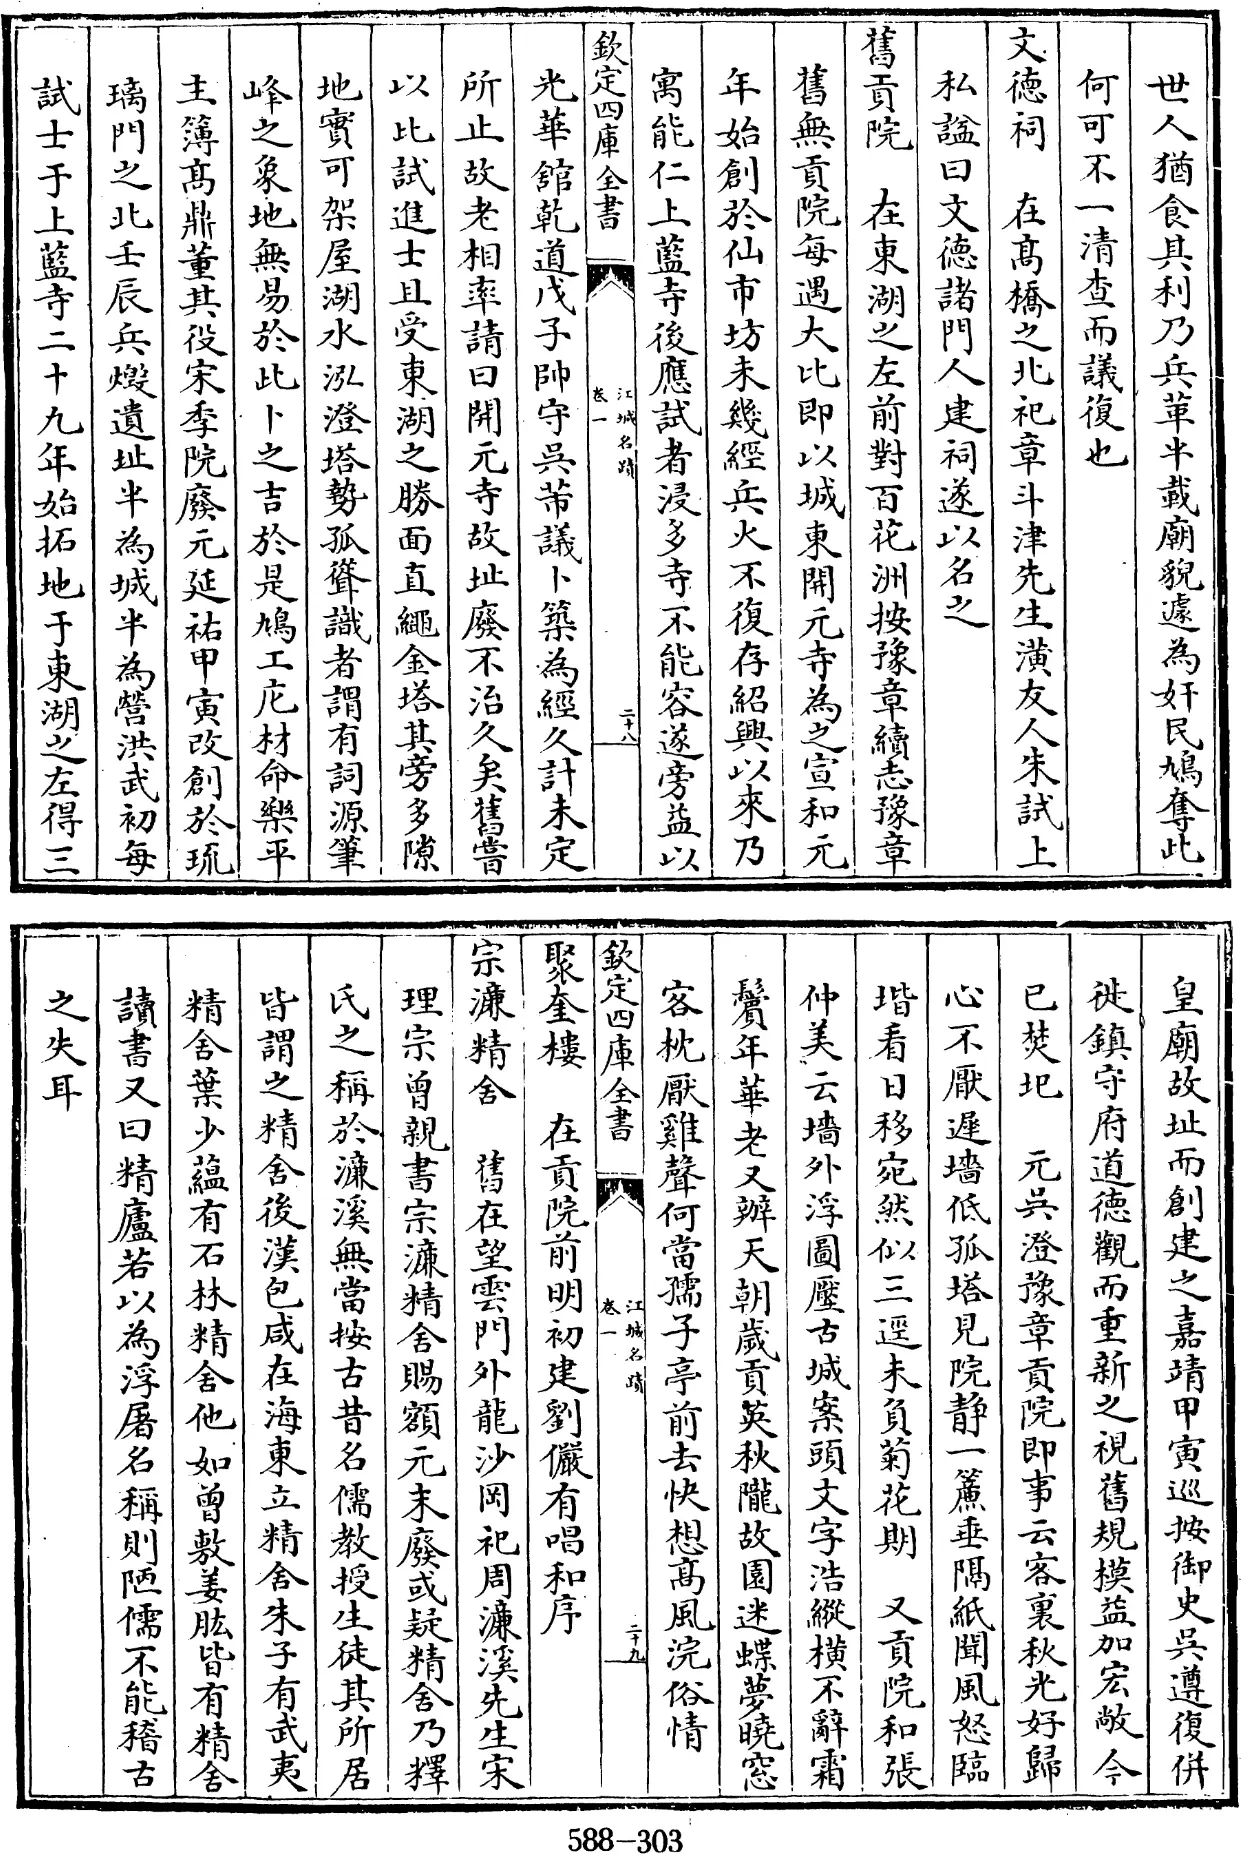 世人猶食其利乃兵革半載廟貌遽為奸民鳩奪此
何可不一清查而議復也
文德祠　在髙橋之北祀章斗津先生潢友人朱試上
私諡曰文德諸門人建祠遂以名之
舊貢院　在東湖之左前對百花洲按豫章續志豫章
舊無貢院每遇大比即以城東開元寺為之宣和元
年始創於仙市坊未幾經兵火不復存紹興以來乃
寓能仁上藍寺後應試者浸多寺不能容遂旁益以
欽定四庫全書
江城名蹟
卷一
二十八
光華舘乾道戊子帥守吳芾議卜築為經久計未定
所止故老相率請曰開元寺故址廢不治久矣舊嘗
以此試進士且受東湖之勝面直繩金塔其旁多隙
地實可架屋湖水泓澄塔勢孤聳識者謂有詞源筆
峰之象地無易於此卜之吉於是鳩工庀材命樂平
主簿髙鼎董其役宋季院廢元延祐甲寅改創於琉
璃門之北壬辰兵燬遺址半為城半為營洪武初每
試士于上藍寺二十九年始拓地于東湖之左得三
皇廟故址而創建之嘉靖甲寅巡按御史吳遵復併
徙鎮守府道德觀而重新之視舊規模益加宏敞今
已焚圯　元吳澄豫章貢院即事云客裏秋光好歸
心不厭遲墻低孤塔見院静一簾垂隔紙聞風怒臨
堦看日移宛然似三逕未負菊花期　又貢院和張
仲美云墻外浮圖壓古城案頭文字浩縱橫不辭霜
鬢年華老又辦天朝歲貢英秋隴故園迷蝶夢曉窓
客枕厭雞聲何當孺子亭前去快想髙風浣俗情
欽定四庫全書
江城名蹟
卷一
二十九
聚奎樓　在貢院前明初建劉儼有唱和序
宗濂精舍　舊在望雲門外龍沙岡祀周濂溪先生宋
理宗曾親書宗濂精舍賜額元末廢或疑精舍乃釋
氏之稱於濂溪無當按古昔名儒教授生徒其所居
皆謂之精舍後漢包咸在海東立精舍朱子有武夷
精舍葉少藴有石林精舍他如曾敷姜肱皆有精舍
讀書又曰精廬若以為浮屠名稱則陋儒不能稽古
之失耳
588-303